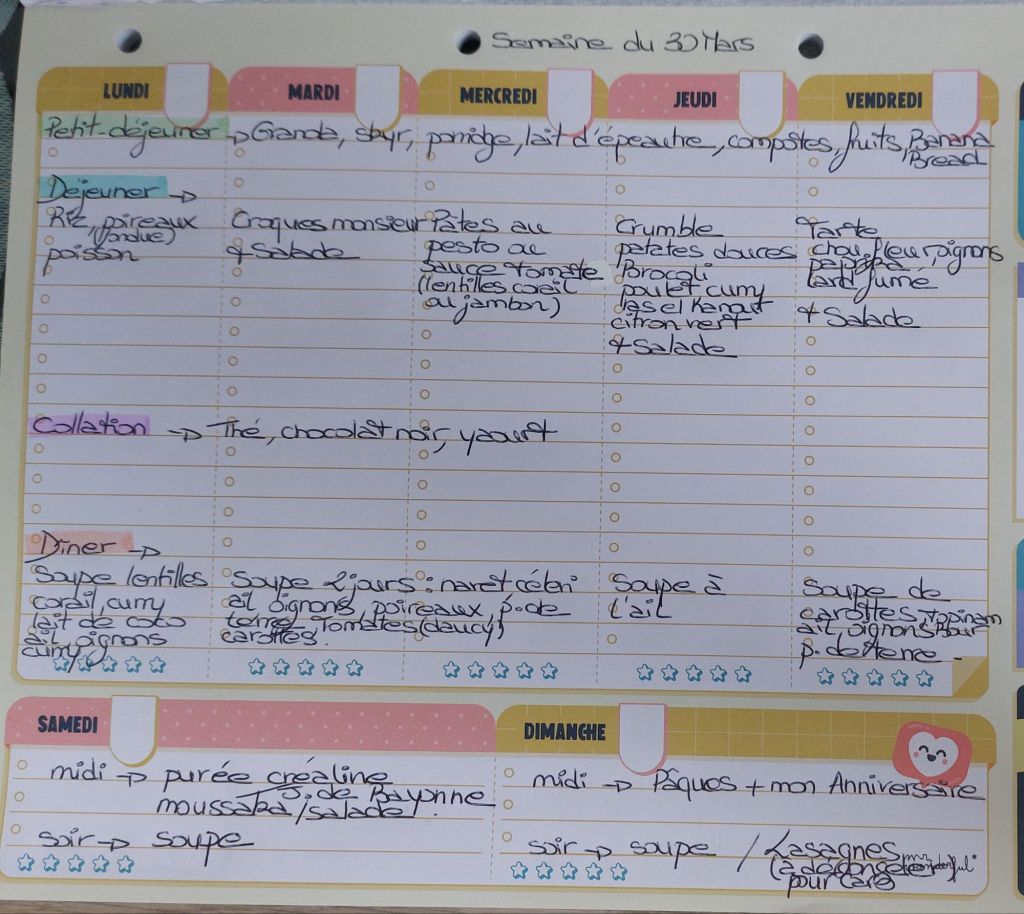 Semaine du 30 Mars
LUNDI MARDI MERCREDI JEUDI VENDREDI
Petit-déjeuner → Granola, skyr, porridge, lait d'épeautre, compotes, fruits, Banana
Bread
Déjeuner →
Riz, poireaux
(fondue)
poisson
Croques monsieur
+ Salade
Pâtes au
pesto ou
sauce tomate
(lentilles corail
ou jambon)
Crumble
patates douces
Brocoli
poulet curry
Ras el Hanout
citron vert
+ Salade
Tarte
chou-fleur, oignons
paprika
lard fumé
+ Salade
Collation → Thé, chocolat noir, yaourt
Dîner →
Soupe lentilles
corail, curry
lait de coco
ail, oignons
curry
Soupe 2 jours : navet céleri
ail oignons, poireaux, p. de
terre, Tomates (daucy)
carottes.
Soupe à
l'ail
Soupe de
carottes, topinam
ail, oignons bour
p. de terre
SAMEDI
midi → purée créaline
J. de Bayonne
moussaka/salade
soir → soupe
DIMANCHE
midi → Pâques + mon Anniversaire
soir → soupe / Lasagnes
(à décongeler
pour Caro